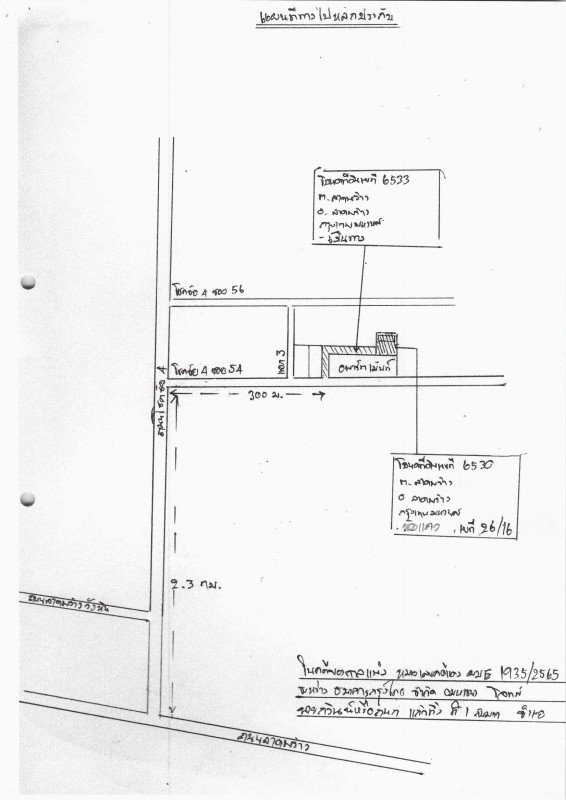 แผนที่ทางไปหลักประกัน
โฉนดที่ดินเลขที่ 6533
ต. ลาดพร้าว
อ. ลาดพร้าว
กรุงเทพมหานคร
โชคชัย 4 ซอย 56
แยก 3
โชคชัย 4 ซอย 54
อพาร์ตเม้นท์
ถนนโชคชัย 4
300 ม.
โฉนดที่ดินเลขที่ 6530
ต. ลาดพร้าว
อ. ลาดพร้าว
กรุงเทพมหานคร
เลขที่ 26/16
2.3 กม.
ถนนลาดพร้าววังหิน
ในคดีของศาลแพ่ง หมายเลขคดีแดง ผบE 1935/2565
ระหว่าง ธนาคารกรุงไทย จำกัด มหาชน โจทก์
ที่ 1 จำเลย
ถนนลาดพร้าว